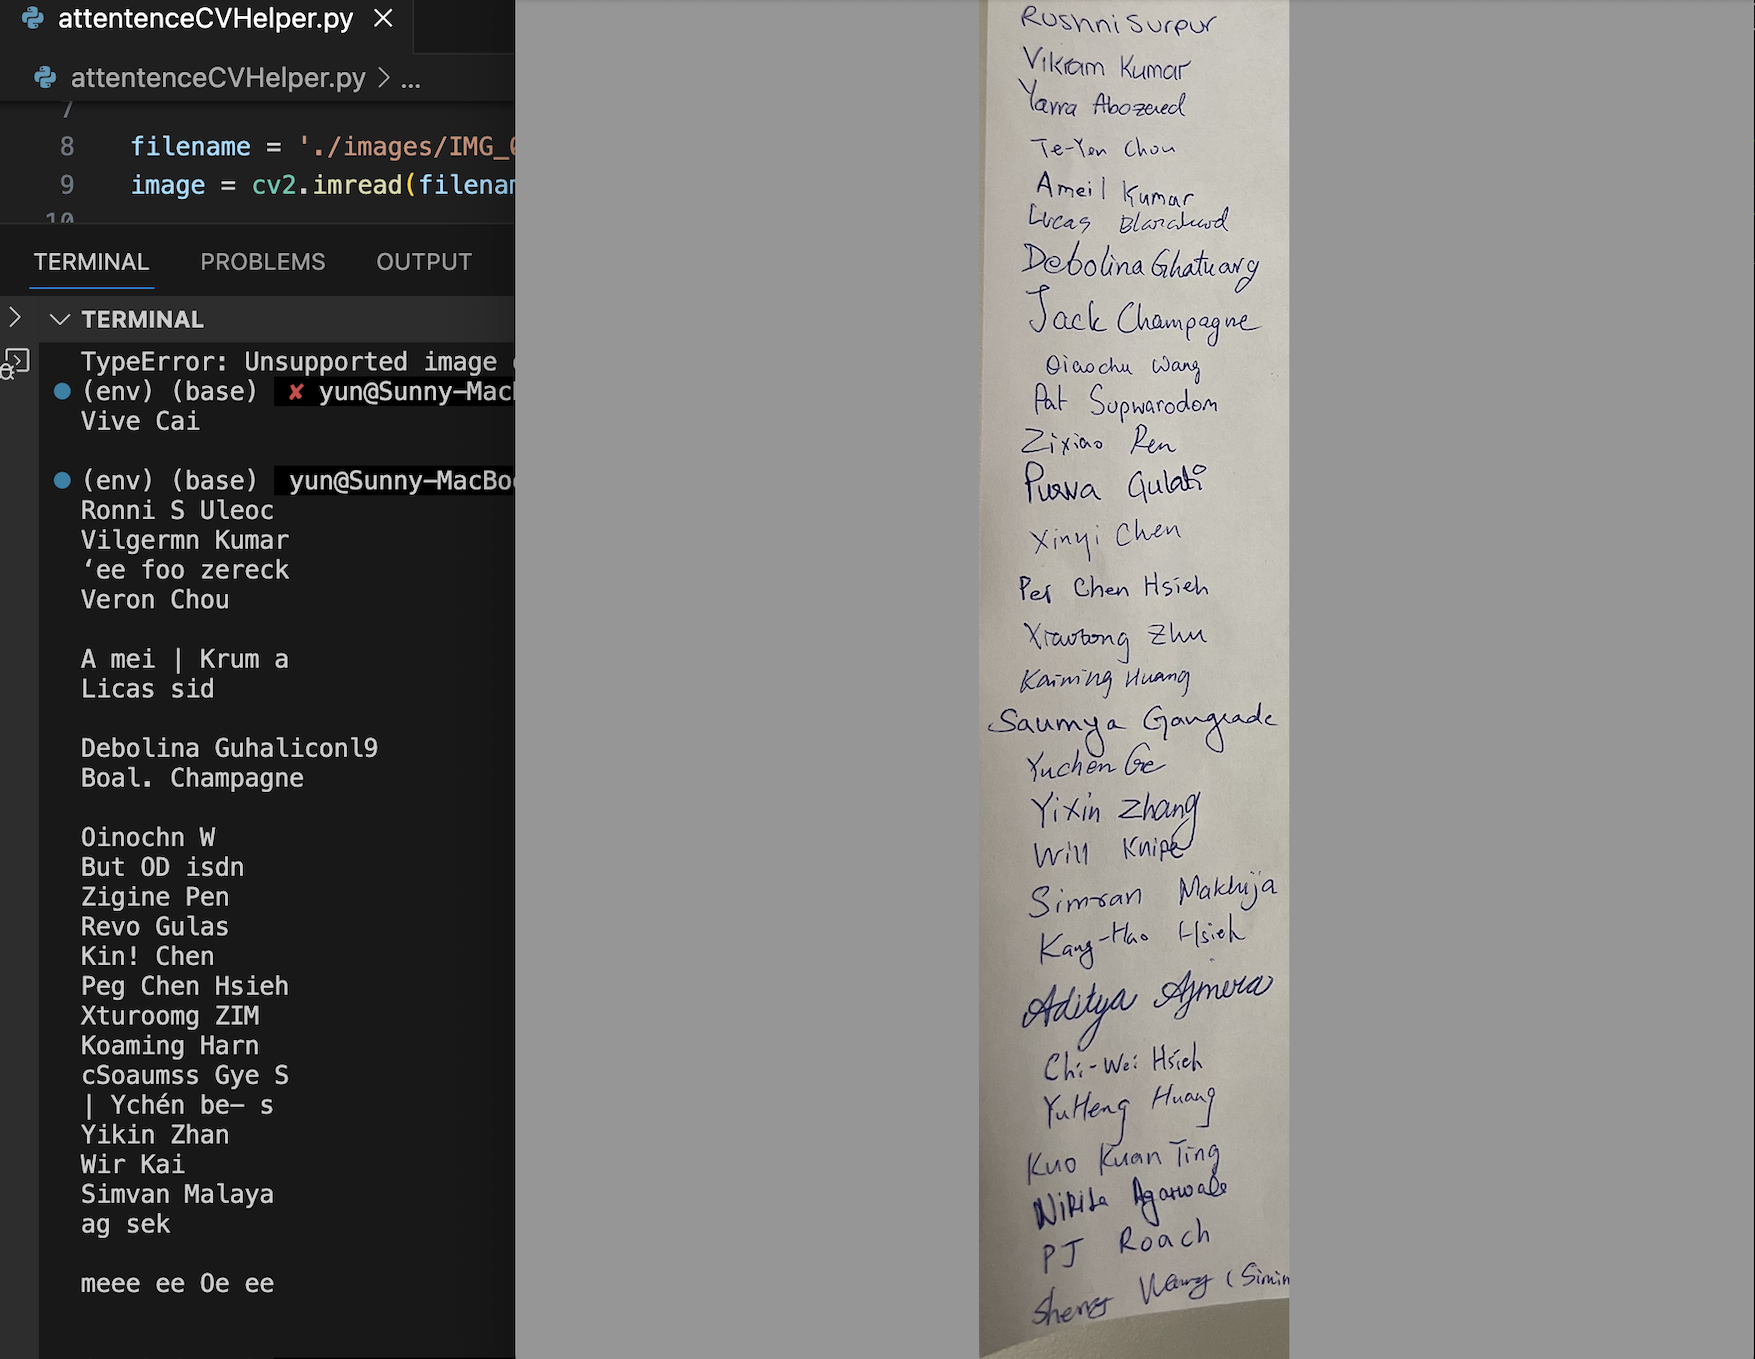 attentenceCVHelper.py ×
attentenceCVHelper.py > ...
7
8 filename = './images/IMG_0
9 image = cv2.imread(filenam
10
TERMINAL PROBLEMS OUTPUT
TERMINAL
TypeError: Unsupported image
(env) (base) ✘ yun@Sunny-Mac
Vive Cai
(env) (base) yun@Sunny-MacBo
Ronni S Uleoc
Vilgermn Kumar
‘ee foo zereck
Veron Chou
A mei | Krum a
Licas sid
Debolina Guhaliconl9
Boal. Champagne
Oinochn W
But OD isdn
Zigine Pen
Revo Gulas
Kin! Chen
Peg Chen Hsieh
Xturoomg ZIM
Koaming Harn
cSoaumss Gye S
| Ychén be— s
Yikin Zhan
Wir Kai
Simvan Malaya
ag sek
meee ee Oe ee
Roshni Surpur
Vikram Kumar
Yarra Abozaed
Te-Yen Chou
Ameil Kumar
Lucas Blanchard
Debolina Ghatuary
Jack Champagne
Qiaochu Wang
Pat Supwarodom
Zixiao Ren
Purva Gulati
Xinyi Chen
Pei Chen Hsieh
Xiaotong Zhu
Kaiming Huang
Saumya Gangrade
Yuchen Ge
Yixin Zhang
Will Knipe
Simran Makhija
Kang-Hao Hsieh
Aditya Ajmera
Chi-Wei Hsieh
YuHeng Huang
Kuo Kuan Ting
Agarwal
PJ Roach
Sheng Wang (Simin